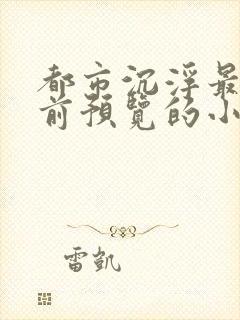 都市沉浮最
前預覽的小
雷凱